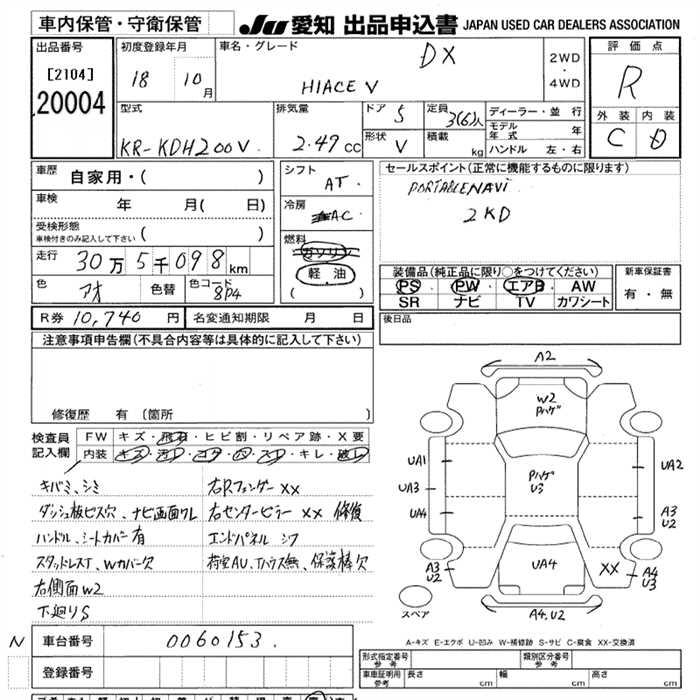 車内保管・守衛保管
JU 愛知 出品申込書 JAPAN USED CAR DEALERS ASSOCIATION
出品番号
[2104]
20004
初度登録年月
18 10月
車名・グレード
DX
HIACE V
2WD
・
4WD
評価点
R
外装 内装
C D
型式
KR-KDH200V
排気量
2.49cc
ドア 5
形状 V
定員 3(6)人
積載 kg
ディーラー・並行
モデル年式 年
ハンドル 左・右
車歴 自家用・( )
車検 年 月( 日)
受検形態
車検付きのみ記入して下さい ( )
走行 30万5千098km
色 アオ 色替 色コード 8P4
シフト AT
冷房 AC
燃料 ガソリン
軽油
( )
セールスポイント(正常に機能するものに限ります)
PORTABLE NAVI
2KD
装備品(純正品に限り○をつけてください)
PS PW エアB AW
SR ナビ TV カワシート
新車保証書
有・無
R券 10,740円 名変通知期限 月 日
後日品
注意事項申告欄(不具合内容等は具体的に記入して下さい)
修復歴 有 〔箇所 〕
検査員記入欄
FW キズ・飛石・ヒビ割・リペア跡・X要
内装 キズ・汚レ・コゲ・穴・スレ・キレ・破レ
キバミ、シミ
ダッシュ板ビス穴、ナビ画面ワレ
ハンドル、シートカバー有
スタッドレスT、Wカバー欠
右側面W2
下廻りS
右Rフェンダー XX
右センターピラー XX 修復
エンドパネル シワ
荷室AU、Tハウス無、保護棒欠
A2
W2
Pハゲ
Pハゲ
U3
UA1
UA3
UA4
UA2
A3
U2
A3
U2
UA4
XX
A4
U3
スペア
A4.U2
A-キズ E-エクボ U-凹み W-補修跡 S-サビ C-腐食 XX-交換済
N 車台番号 0060153
登録番号
形式指定番号
参考
類別区分番号
参考
車庫証明用
参考
長さ cm 幅 cm 高さ cm